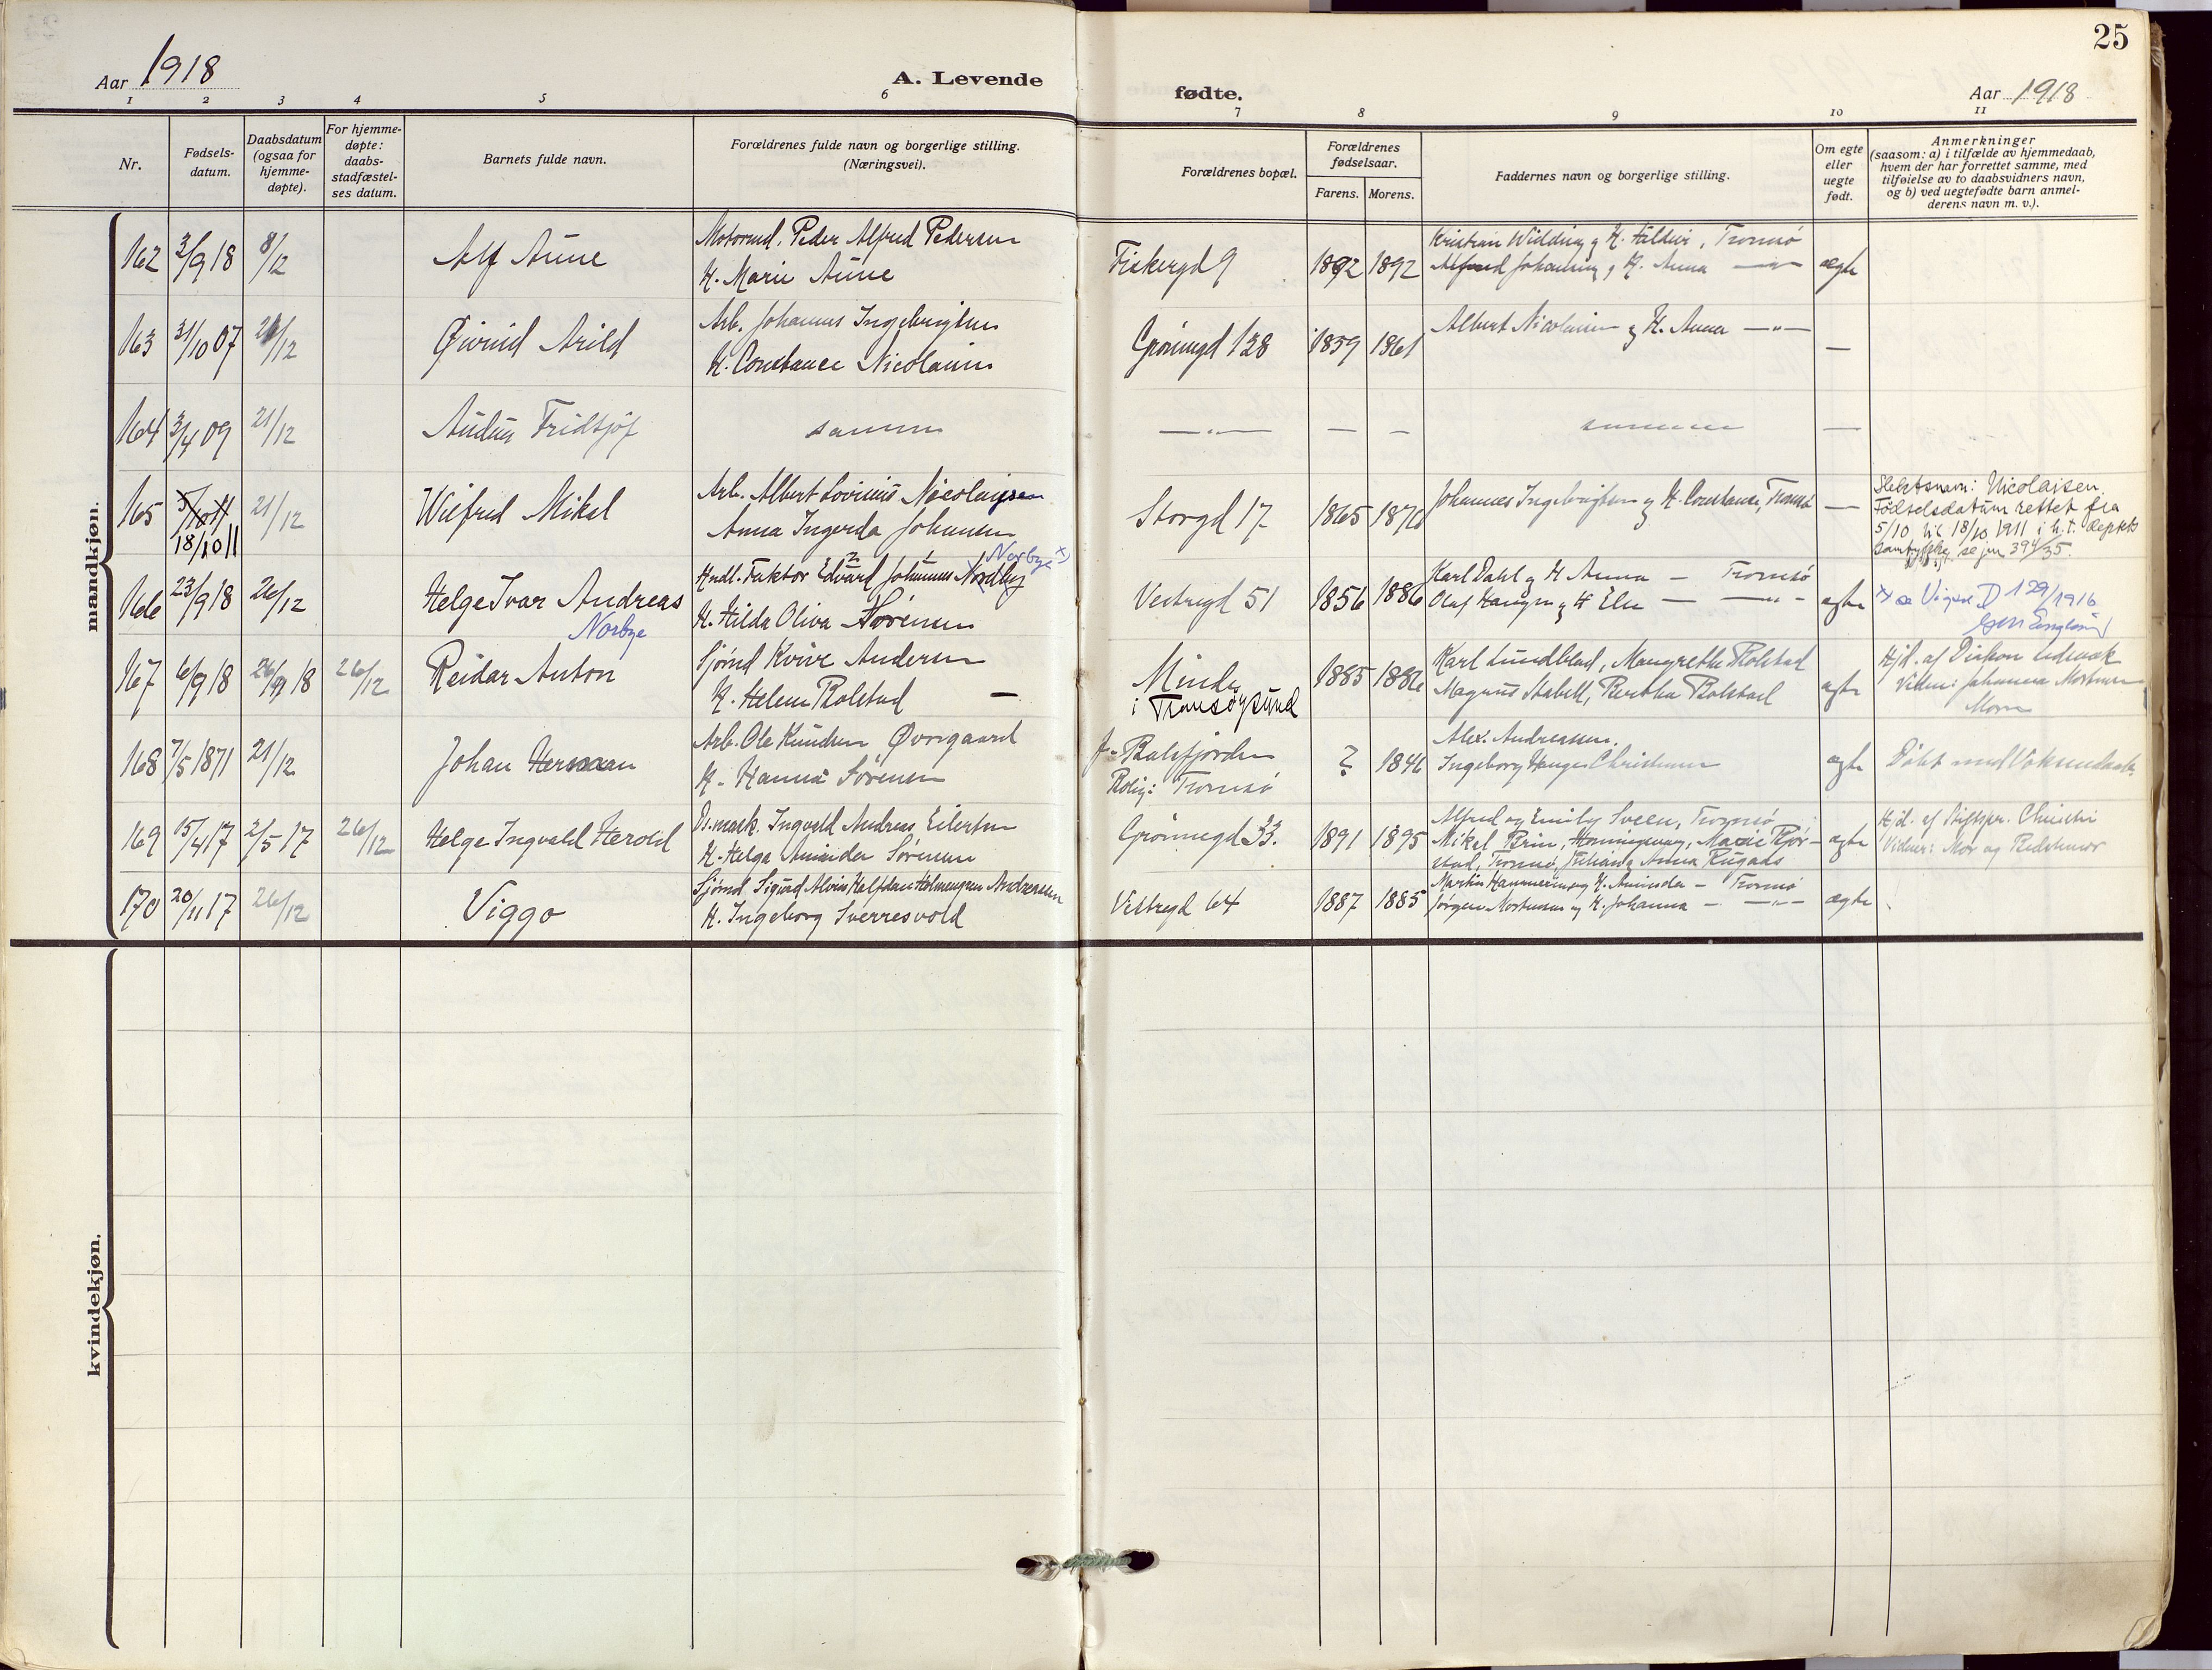 25
Aar 1918
A. Levende
fødte.
Aar 1918
1 2 3 4 5 6 7 8 9 10 11
Nr.
Fødsels-
datum.
Daabsdatum
(ogsaa for
hjemme-
døpte).
For hjemme-
døpte:
daabs-
stadfæstel-
ses datum.
Barnets fulde navn.
Forældrenes fulde navn og borgerlige stilling.
(Næringsvei).
Forældrenes bopæl.
Forældrenes
fødselsaar.
Farens. Morens.
Faddernes navn og borgerlige stilling.
Om egte
eller
uegte
født.
Anmerkninger
(saasom: a) i tilfælde av hjemmedaab,
hvem der har forrettet samme, med
tilføielse av to daabsvidners navn,
og b) ved uegtefødte barn anmel-
derens navn m. v.).
mandkjøn.
162 3/9 18 8/12 Alf Aune
Peder Alfred Pedersen
H. Marie Aune
1892 1892
Tromsø
Alfred og H. Anna
ægte
163 31/10 07 21/12 Øivind Arild
Arb. Johannes Ingebrigtsen
H. Constance Nicolaisen
Grønnegd 128 1859 1861
Albert Nicolaisen og H. Anna —"—
—
164 3/4 09 21/12 Fridtjof
samme
—"— — — samme —
165 5/10 11 21/12 Wilfred Mikal
18/10 11
Arb. Albert Nicolaysen
Anna Ingerda Johansen
Storgd 17 1865 1876
Johannes Ingebrigtsen og H. Constance, Tromsø
—
Slektsnavn: Nicolaisen
Fødselsdatum rettet fra
5/10 til 18/10 1911 i h.t. deptets
samtykke, se jnr 394/35.
166 23/9 18 26/12 Helge Ivar Andreas
Norbye
Hndl. Faktor Edvard Johannes Nordby
Norbye x)
H. Hilda Oliva Sørensen
Vestregd 51 1856 1886
Karl Dahl og H Anna — Tromsø
Olaf Haugen og H Elen — —"—
ægte
x) se 129/1916
167 6/9 18 26/9 18 26/12 Reidar Anton
Sjømd Andersen
H. Helene Bolstad —
Minde
i Tromsøysund
1885 1886
Karl Lundblad, Margrethe Bolstad
Magnus Stabell, Bertha Bolstad
ægte
Hjd. af Diakon
Vidner: Johanna Mortensen
168 7/5 1871 21/12 Johan Herman
Arb. Ole Knudsen Øvergaard
H. Hanna Sørensen
Balsfjorden
Bolig: Tromsø
? 1846
Alex. Andreassen
Ingeborg Hauger Christensen
ægte
Døbt med Voksendaab
169 15/4 17 2/5 17 26/12 Helge Ingvald Herold
Ingvald Andreas Eilertsen
H. Helga Aminda Sørensen
Grønnegd 33. 1891 1895
Alfred og Emily Sveen, Tromsø
Mikal Brin, Honningsvaag, Marie Kjør-
stad, Tromsø, Anna
ægte
Hjd. af Stiftspr. Christie
Vidner: Mor og Bedstemor
170 20/11 17 26/12 Viggo
Sjømd Sigurd Alvin Halfdan Holmengren Andreassen
H. Ingeborg Sverresvold
Vestregd 64 1887 1885
Martin Hammering og H. Aminda — Tromsø
Jørgen Mortensen og H. Johanna — —"—
ægte
kvindekjøn.